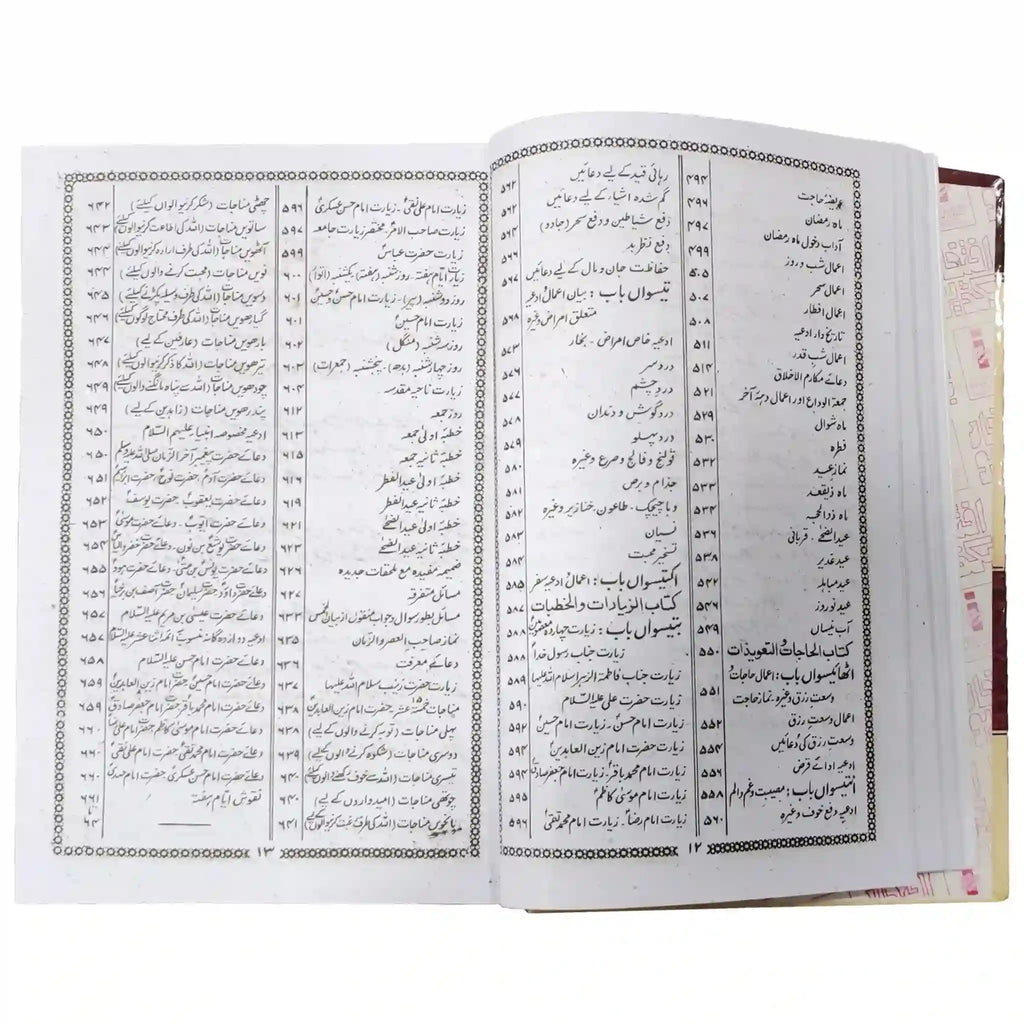 عریضۂ حاجت ۴۹۴
ماہ رمضان ۴۹۶
آداب دخول ماہ رمضان ۴۹۷
اعمال شب و روز ۴۹۹
اعمال سحر ۵۰۵
اعمال افطار ۵۰۷
تاریخ دار ادعیہ ۵۰۸
اعمال شب قدر ۵۱۱
دعائے مکارم الاخلاق ۵۱۴
جمعۃ الوداع اور اعمال دہۂ آخر ۵۲۱
ماہ شوال ۵۲۹
فطرہ ۵۳۰
نماز عید ۵۳۲
ماہ ذیقعد ۵۳۳
ماہ ذوالحجہ ۵۳۴
عید الضحٰے۔ قربانی ۵۳۶
عید غدیر ۵۳۸
عید مباہلہ ۵۴۲
عید نوروز ۵۴۶
آب نیساں ۵۴۹
کتاب الحاجات والتعویذات ۵۵۰
اٹھائیسواں باب: اعمال حاجات
وسعت رزق وغیرہ۔ نماز حاجت ۵۵۱
اعمال وسعت رزق ۵۵۲
وسعت رزق کی دعائیں ۵۵۴
ادعیہ ادائے قرض ۵۵۶
انتیسواں باب: مصیبت و غم و الم ۵۵۸
ادعیہ دفع خوف وغیرہ ۵۶۰
رہائی قید کے لیے دعائیں ۵۶۲
گم شدہ اشیاء کے لیے دعائیں ۵۶۲
دفع شیاطین و دفع سحر (جادو) ۵۶۴
دفع نظر بد ۵۶۶
حفاظت جان و مال کے لیے دعائیں ۵۶۷
تیسواں باب: بیان اعمال و ادعیہ
متعلق امراض وغیرہ ۵۶۸
ادعیہ خاص امراض۔ بخار ۵۷۳
درد سر ۵۷۶
درد چشم ۵۷۶
درد گوش و دندان ۵۷۸
درد پہلو ۵۷۹
قولنج و فالج و صرع وغیرہ ۵۸۰
جذام و برص ۵۸۱
وبا چیچک۔ طاعون۔ خنازیر وغیرہ ۵۸۲
نسیان ۵۸۳
تسخیر محبت ۵۸۴
اکتیسواں باب: اعمال ادعیہ سفر ۵۸۵
کتاب الزیارات والخطبات ۵۸۷
بتیسواں باب: زیارت چہاردہ معصومینؑ ۵۸۸
زیارت جناب رسول خداؐ ۵۸۸
زیارت جناب فاطمۃ الزہرا سلام اللہ علیہا ۵۸۹
زیارت حضرت علی علیہ السلام ۵۹۰
زیارت امام حسنؑ۔ زیارت امام حسینؑ ۵۹۲
زیارت حضرت امام زین العابدینؑ ۵۹۴
زیارت امام محمد باقرؑ۔ زیارت امام جعفر صادقؑ ۵۹۴
زیارت امام موسیٰ کاظمؑ ۵۹۵
زیارت امام رضاؑ۔ زیارت امام محمد تقیؑ ۵۹۶
۱۲
زیارت امام علی نقیؑ۔ زیارت امام حسن عسکریؑ ۵۹۶
زیارت صاحب الامرؑ مختصر زیارت جامعہ ۵۹۷
زیارت حضرت عباسؑ ۵۹۹
زیارات ایام ہفتہ۔ روز شنبہ (ہفتہ) یکشنبہ (اتوار) ۶۰۰
روز دوشنبہ (پیر)۔ زیارت امام حسنؑ و حسینؑ ۶۰۱
زیارت امام حسینؑ ۶۰۱
روز سہ شنبہ (منگل) ۶۰۲
روز چہار شنبہ (بدھ)۔ پنجشنبہ (جمعرات) ۶۰۳
زیارت ناحیہ مقدسہ ۶۰۴
روز جمعہ ۶۱۲
خطبۂ اولیٰ جمعہ ۶۱۳
خطبۂ ثانیہ جمعہ ۶۱۵
خطبۂ اولیٰ عید الفطر ۶۱۶
خطبۂ ثانیہ عید الفطر ۶۱۹
خطبۂ اولیٰ عید الضحٰے ۶۲۱
خطبۂ ثانیہ عید الضحٰے ۶۲۳
ضمیمہ مفیدہ مع ملحقات جدیدہ ۶۲۶
مسائل متفرقہ ۶۲۷
مسائل بطور سوال و جواب منقول از 633
نماز صاحب العصر والزمان ۶۳۵
دعائے معرفت ۶۳۶
زیارت حضرت زینب سلام اللہ علیہا ۶۳۷
مناجات خمسۃ عشر حضرت امام زین العابدینؑ ۶۳۸
پہلی مناجات (توبہ کرنے والوں کیلئے) ۶۳۸
دوسری مناجات (شکوہ کرنے والوں کیلئے) ۶۳۹
تیسری مناجات (اللہ سے خوف رکھنے والوں کیلئے) ۶۴۰
چوتھی مناجات (امیدواروں کے لیے) ۶۴۰
پانچویں مناجات (اللہ کی طرف رغبت کرنیوالوں کیلئے) ۶۴۱
چھٹی مناجات (شکر کرنیوالوں کیلئے) ۶۴۲
ساتویں مناجات (اللہ کی اطاعت کرنیوالوں کیلئے) ۶۴۳
آٹھویں مناجات (اللہ کی طرف ارادہ کرنیوالوں کیلئے) ۶۴۳
نویں مناجات (محبت کرنے والوں کیلئے) ۶۴۴
دسویں مناجات (اللہ کی طرف وسیلہ پکڑنے والوں کیلئے) ۶۴۵
گیارھویں مناجات (اللہ کی طرف محتاج لوگوں کیلئے) ۶۴۶
بارھویں مناجات (عارفین کے لیے) ۶۴۷
تیرھویں مناجات (اللہ کا ذکر کرنیوالوں کیلئے) ۶۴۸
چودھویں مناجات (اللہ سے پناہ مانگنے والوں کیلئے) ۶۴۹
پندرھویں مناجات (زاہدین کے لیے) ۶۴۹
ادعیہ مخصوصہ انبیاء علیہم السلام ۶۵۰
دعائے حضرت پیغمبر آخر الزمان صلی اللہ علیہ وسلم ۶۵۰
دعائے حضرت آدمؑ، حضرت نوحؑ، حضرت ابراہیمؑ ۶۵۱
دعائے حضرت یعقوبؑ، حضرت یوسفؑ ۶۵۲
دعائے حضرت ایوبؑ۔ دعائے حضرت موسیٰؑ ۶۵۳
دعائے حضرت یوشعؑ بن نون۔ دعائے حضرت خضرؑ و الیاسؑ ۶۵۴
دعائے حضرت یونسؑ بن متیٰ۔ دعائے حضرت ہودؑ ۶۵۵
دعائے حضرت داؤدؑ حضرت سلیمانؑ حضرت آصف بن برخیاؑ ۶۵۶
دعائے حضرت عیسیٰ بن مریم علیہ السلام ۶۵۷
ادعیہ دوازدہ گانہ منسوب ائمہ اثنا عشر علیہم السلام ۶۵۷
دعائے حضرت امام حسن علیہ السلام ۶۵۸
دعائے حضرت امام حسینؑ حضرت امام زین العابدینؑ ۶۵۹
دعائے حضرت امام محمد باقرؑ حضرت امام جعفر صادقؑ ۶۵۹
دعائے حضرت امام موسیٰ کاظمؑ حضرت امام علی رضاؑ ۶۶۰
دعائے حضرت امام محمد تقیؑ حضرت امام علی نقیؑ ۶۶۰
دعائے حضرت امام حسن عسکریؑ حضرت امام مہدیؑ ۶۶۰
نقوش ایام ہفتہ ۶۶۱
تا
۶۴
۱۳